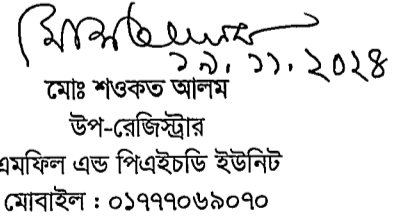 ১৯.১১.২০২৪
মোঃ শওকত আলম
উপ-রেজিস্ট্রার
এমফিল এন্ড পিএইচডি ইউনিট
মোবাইল : ০১৭৭৭০৬৯০৭০